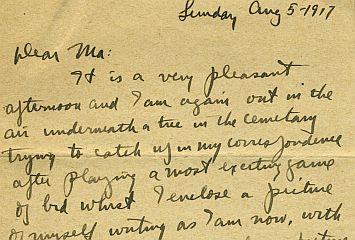 Sunday Aug 5-1917
Dear Ma:
It is a very pleasant
afternoon and I am again out in the
air underneath a tree in the cemetary
trying to catch up in my correspondence
after playing a most exciting game
of bid whist I enclose a picture
of myself writing as I am now, with